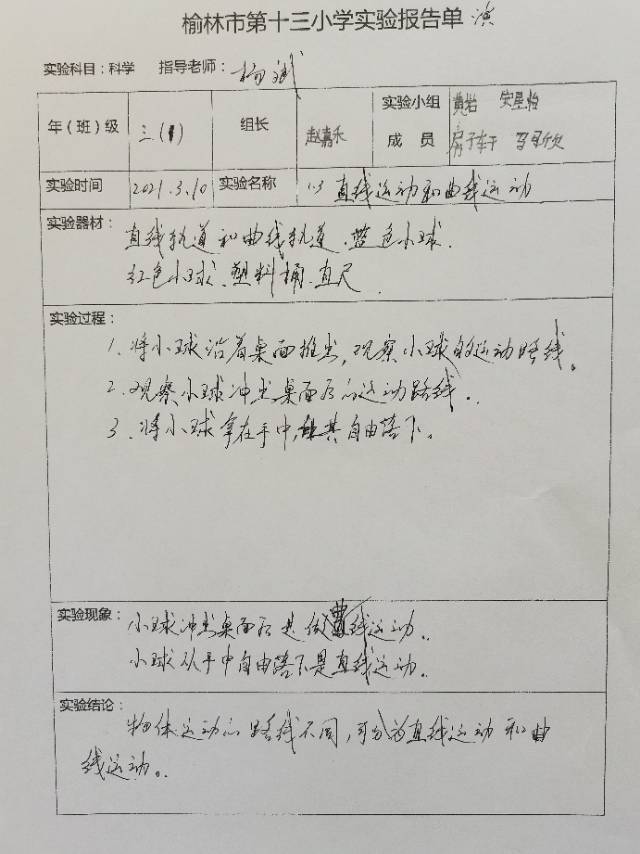 榆林市第十三小学实验报告单 演
实验科目：科学 指导老师：杨斌
年（班）级 三（1） 组长 赵嘉禾 实验小组成员 黄岩
实验时间 2021.3.10 实验名称 1.3 直线运动和曲线运动
实验器材：
直线轨道和曲线轨道、蓝色小球、
红色小球、塑料桶、直尺
实验过程：
1、将小球沿着桌面推出，观察小球的运动路线。
2、观察小球冲出桌面后的运动路线。
3、将小球拿在手中，让其自由落下。
实验现象：
小球冲出桌面后是做曲线运动。
小球从手中自由落下是直线运动。
实验结论：
物体运动的路线不同，可分为直线运动和曲
线运动。